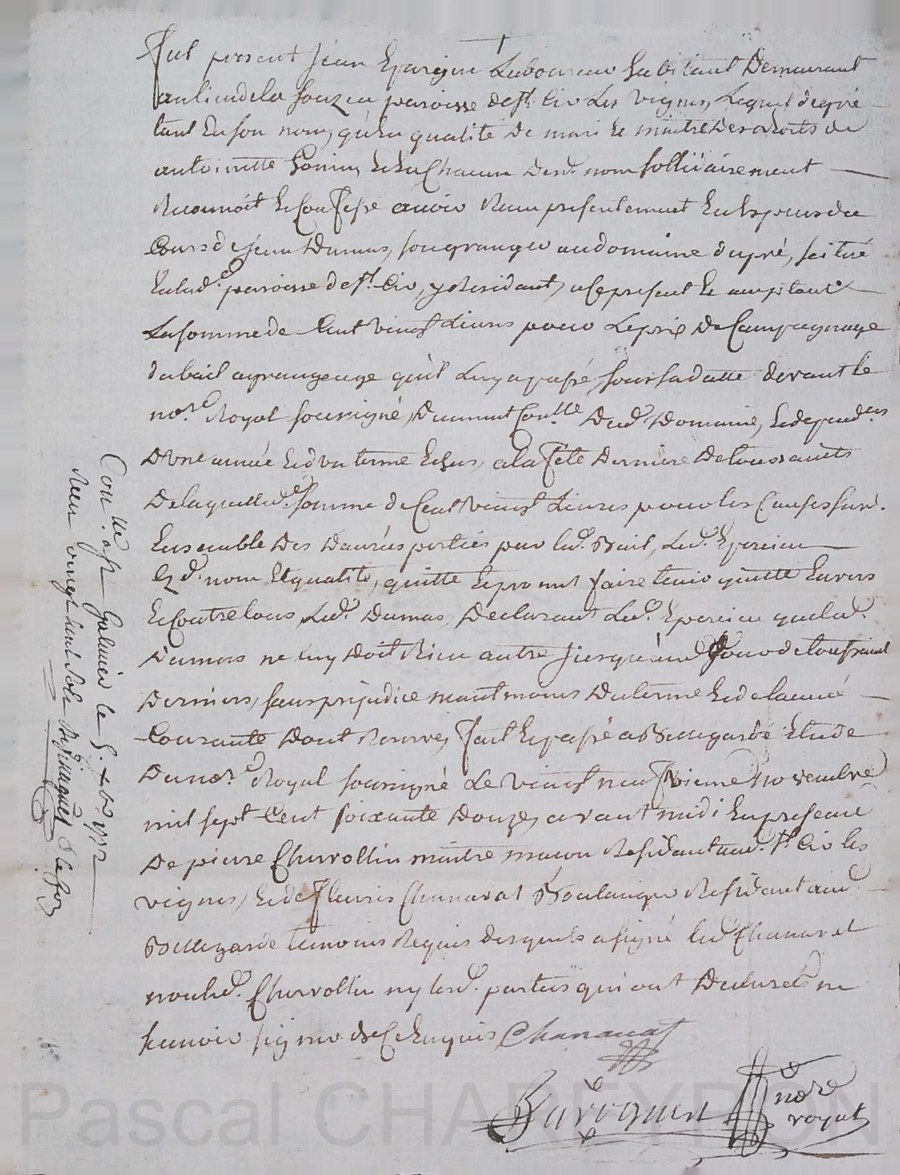 Fut present Jean Epercieu Laboureur habitant Demeurant
au lieu de la parroisse de st. Cir Les vignes, Lequel
tant En son nom, qu'En qualité De mari Et maitre Des droits de
antoinette Et En Chacun Desd. nom sollidairement
Reconnoit Et Confesse avoir Receu presentement En Especes du
Cours de Jean Dumas, son granger au domaine du pré, scitué
En lad.e parroisse de st. Cir, y Residant, a Ce present Et acceptant
La somme de Cent vingt Livres pour Le prix De Compagnage
du bail a grangeage qu'il Luy a passé, sous sa datte devant le
no.re Royal soussigné, Dud. Domaine, Et dependces
D'une année Et d'un terme Echus, a la fête Derniere De toussaints
De laquelle d.e somme de Cent vingt Livres pour les Causes sur d.
Ensemble Des Danrées portées par led. Bail, Led. Epercieu
Esd. nom, Et qualité, quitte Et promet faire tenir quitte Envers
Et Contre tous, Led. Dumas, Declarant Led. Epercieu que led.
Dumas ne luy Doit Rien autre Jusques au Jour de toussaint
Dernier, sans prejudice neantmoins Du terme Et de l'année
Courante Dont Reserve, fait Et passé a Bellegarde Etude
Du no.re Royal soussigné Le vingt neufvieme novembre
mil sept Cent soixante Douze, avant midi En presence
De pierre Chirollin maitre maçon Residant aud. st. Cir les
vignes, Et de fleuris Chanavat Boulanger Residant aud.
Bellegarde temoins Requis desquels a signé led. Chanavat
non led. Chirollin ny lesd. parties qui ont Declaré ne
scavoir signer de Ce Enquis Chanavat
no.re
royal
Con.lle a st Galmier le 5. xbre 1772
Receu vingt huit sols